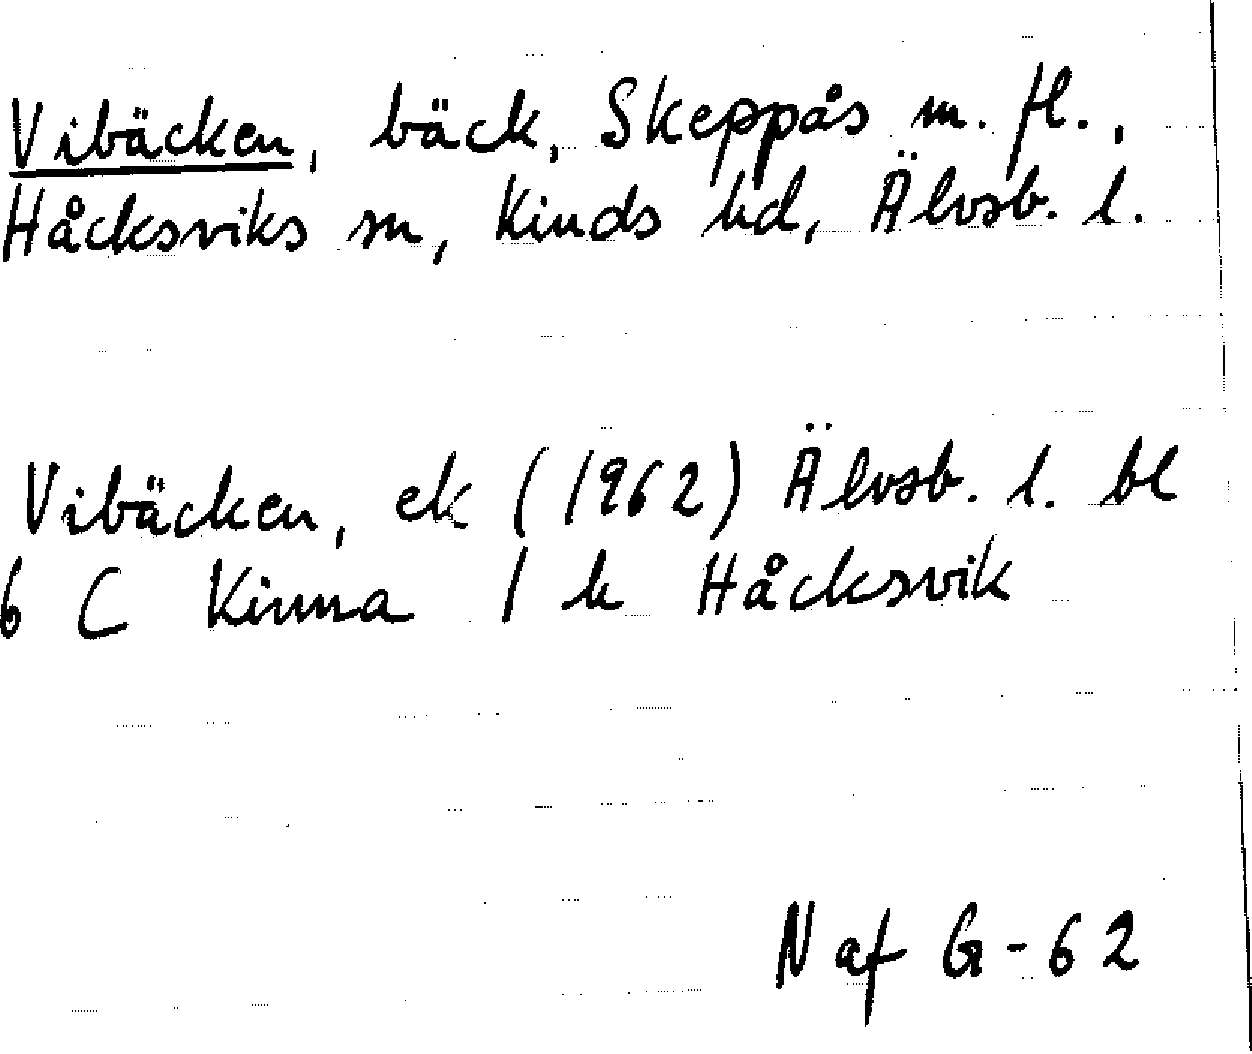 Vibäcken, bäck, Skeppås m. fl.,
Håcksviks sn, Kinds hd, Älvsb. l.
Vibäcken, ek (1962) Älvsb. l. bl
6 C Kinna 1 h Håcksvik
Naf G-62